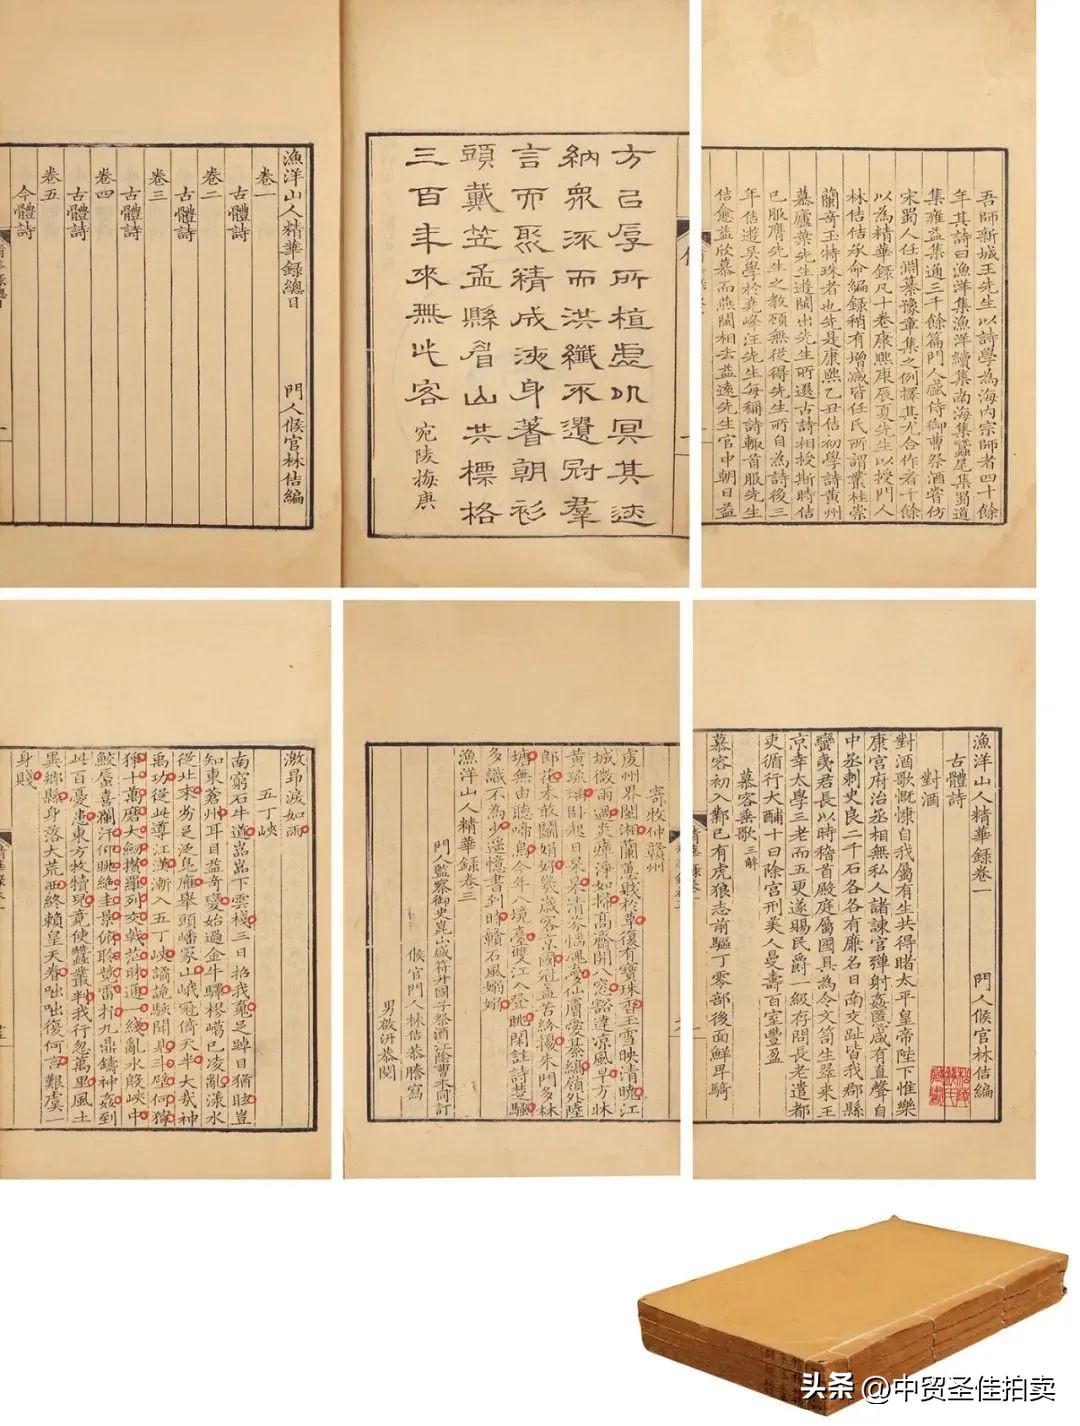 吾師新城王先生以詩學為海內宗師者四十餘
年其詩曰漁洋集漁洋續集南海集蠶尾集蜀道
集雍益集通三千餘篇門人盛侍御曹祭酒嘗仿
宋蜀人任淵纂豫章集之例擇其尤合作者千餘
以為精華錄凡十卷康熙庚辰夏先生以授門人
林佶佶承命編錄稍有增減皆任氏所謂叢桂崇
蘭奇玉特珠者也先是康熙乙丑佶初學詩黃州
慕廬葉先生遊閩出先生所選古詩相授斯時佶
已服膺先生之教顧無從得先生所自為詩後三
年佶遊吳學於堯峰汪先生每稱詩輒首服先生
佶愈益欣慕而燕閩相去益遠先生官中朝日益
方己厚所植虛以冥其
納眾流而洪纖不遺冠羣
言而聚精成浹身著朝衫
頭戴笠孟縣眉山共標格
三百年來無此客 宛陵梅庚
漁洋山人精華錄總目
門人候官林佶編
卷一
古體詩
卷二
古體詩
卷三
古體詩
卷四
古體詩
卷五
今體詩
漁洋山人精華錄卷一
門人候官林佶編
古體詩
對酒
對酒歌慨慷自我屬有生共得睹太平皇帝陛下惟樂
康官府治丞相無私人諸諫官彈射姦匿咸有直聲自
中丞刺史良二千石各各有廉名日南交趾皆我郡縣
蠻夷君長以時稽首殿庭屬國具為令文笥生翠來王
京幸太學三老而五更遂賜民爵一級存問長老遣都
吏循行大酺十日除宮刑美人曼壽百室豐盈
慕容垂歌三解
慕容初入鄴已有虎狼志前驅丁零部後面鮮卑騎
寄牧仲贛州
虔州界閩湘蘭蕙賤於草復有寶珠香玉雪映清曉江
城微雨過炎瘴淨如掃高齋開八窓豁達凉風早方牀
黃琉璃臥起日杲杲清芬愜愧夢仙膚愛綦縞領外陸
郎花未敢鬬娟好燹歲客京國冠蓋苦紛擾朱門多林
塘無由聽啼鳥今年八境臺雙江入登眺閑註詩楚騷
多識不為少遥憶書刹時贛石風嫋嫋
漁洋山人精華錄卷三
門人監察御史崑山盛符升國子祭酒江陰曹禾同訂
候官門人林佶恭謄寫
男啟汧恭閱
激昂淚如雨
五丁峽
南窮石牛道嵓嵓下雲棧三日招我䰟足踔目猶眩豈
知東蒼州耳目益奇變始過金牛驛㮚嶱已凌亂漾水
從北來劣足泛鳧雁舉頭嶓冢山峨冠倚天半大哉神
禹功從此導江漢漸入五丁峽譎詭駭聞見斗壁何猙
獰十萬磨大劍攢羅列交戟茫昧通一綫亂水殷峽中
鮫蜃喜瀾汗仰眺絕圭景俯聆驚雷抃九鼎鑄神姦到
此百憂患東方牧犢兒竟使蠶叢判我行忽萬里風土
異鄉縣身落大荒西終賴皇天眷咄咄復何言艱虞一
身賤
头条 @中贸圣佳拍卖